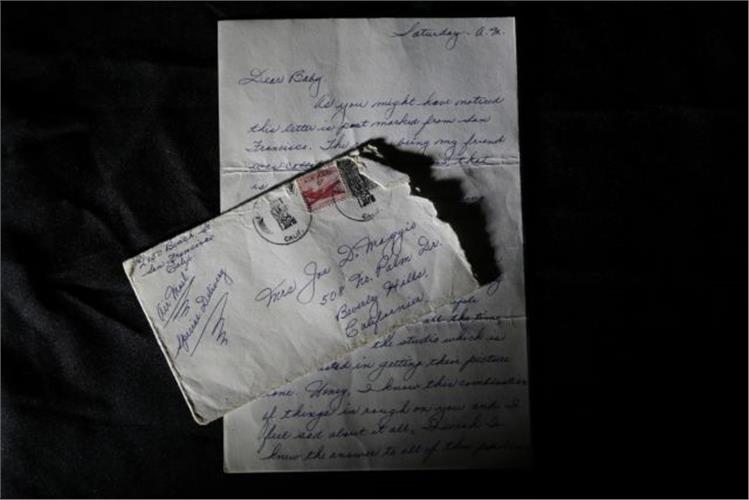 Saturday - A.M.
Dear Baby,
As you might have noticed
this letter is post marked from San
Francisco. The being my friend
was that
is
AIR MAIL
CALIF.
CALIF.
2150 Beach St.
San Francisco
Calif.
Air Mail
Special Delivery
Mrs Joe D. Maggio
508 No. Palm Dr.
Beverly Hills,
California
all the time
the studio which is
in getting their picture
done. Honey, I know this combination
of things is rough on you and I
feel sad about it all, I wish I
knew the answer to all of this